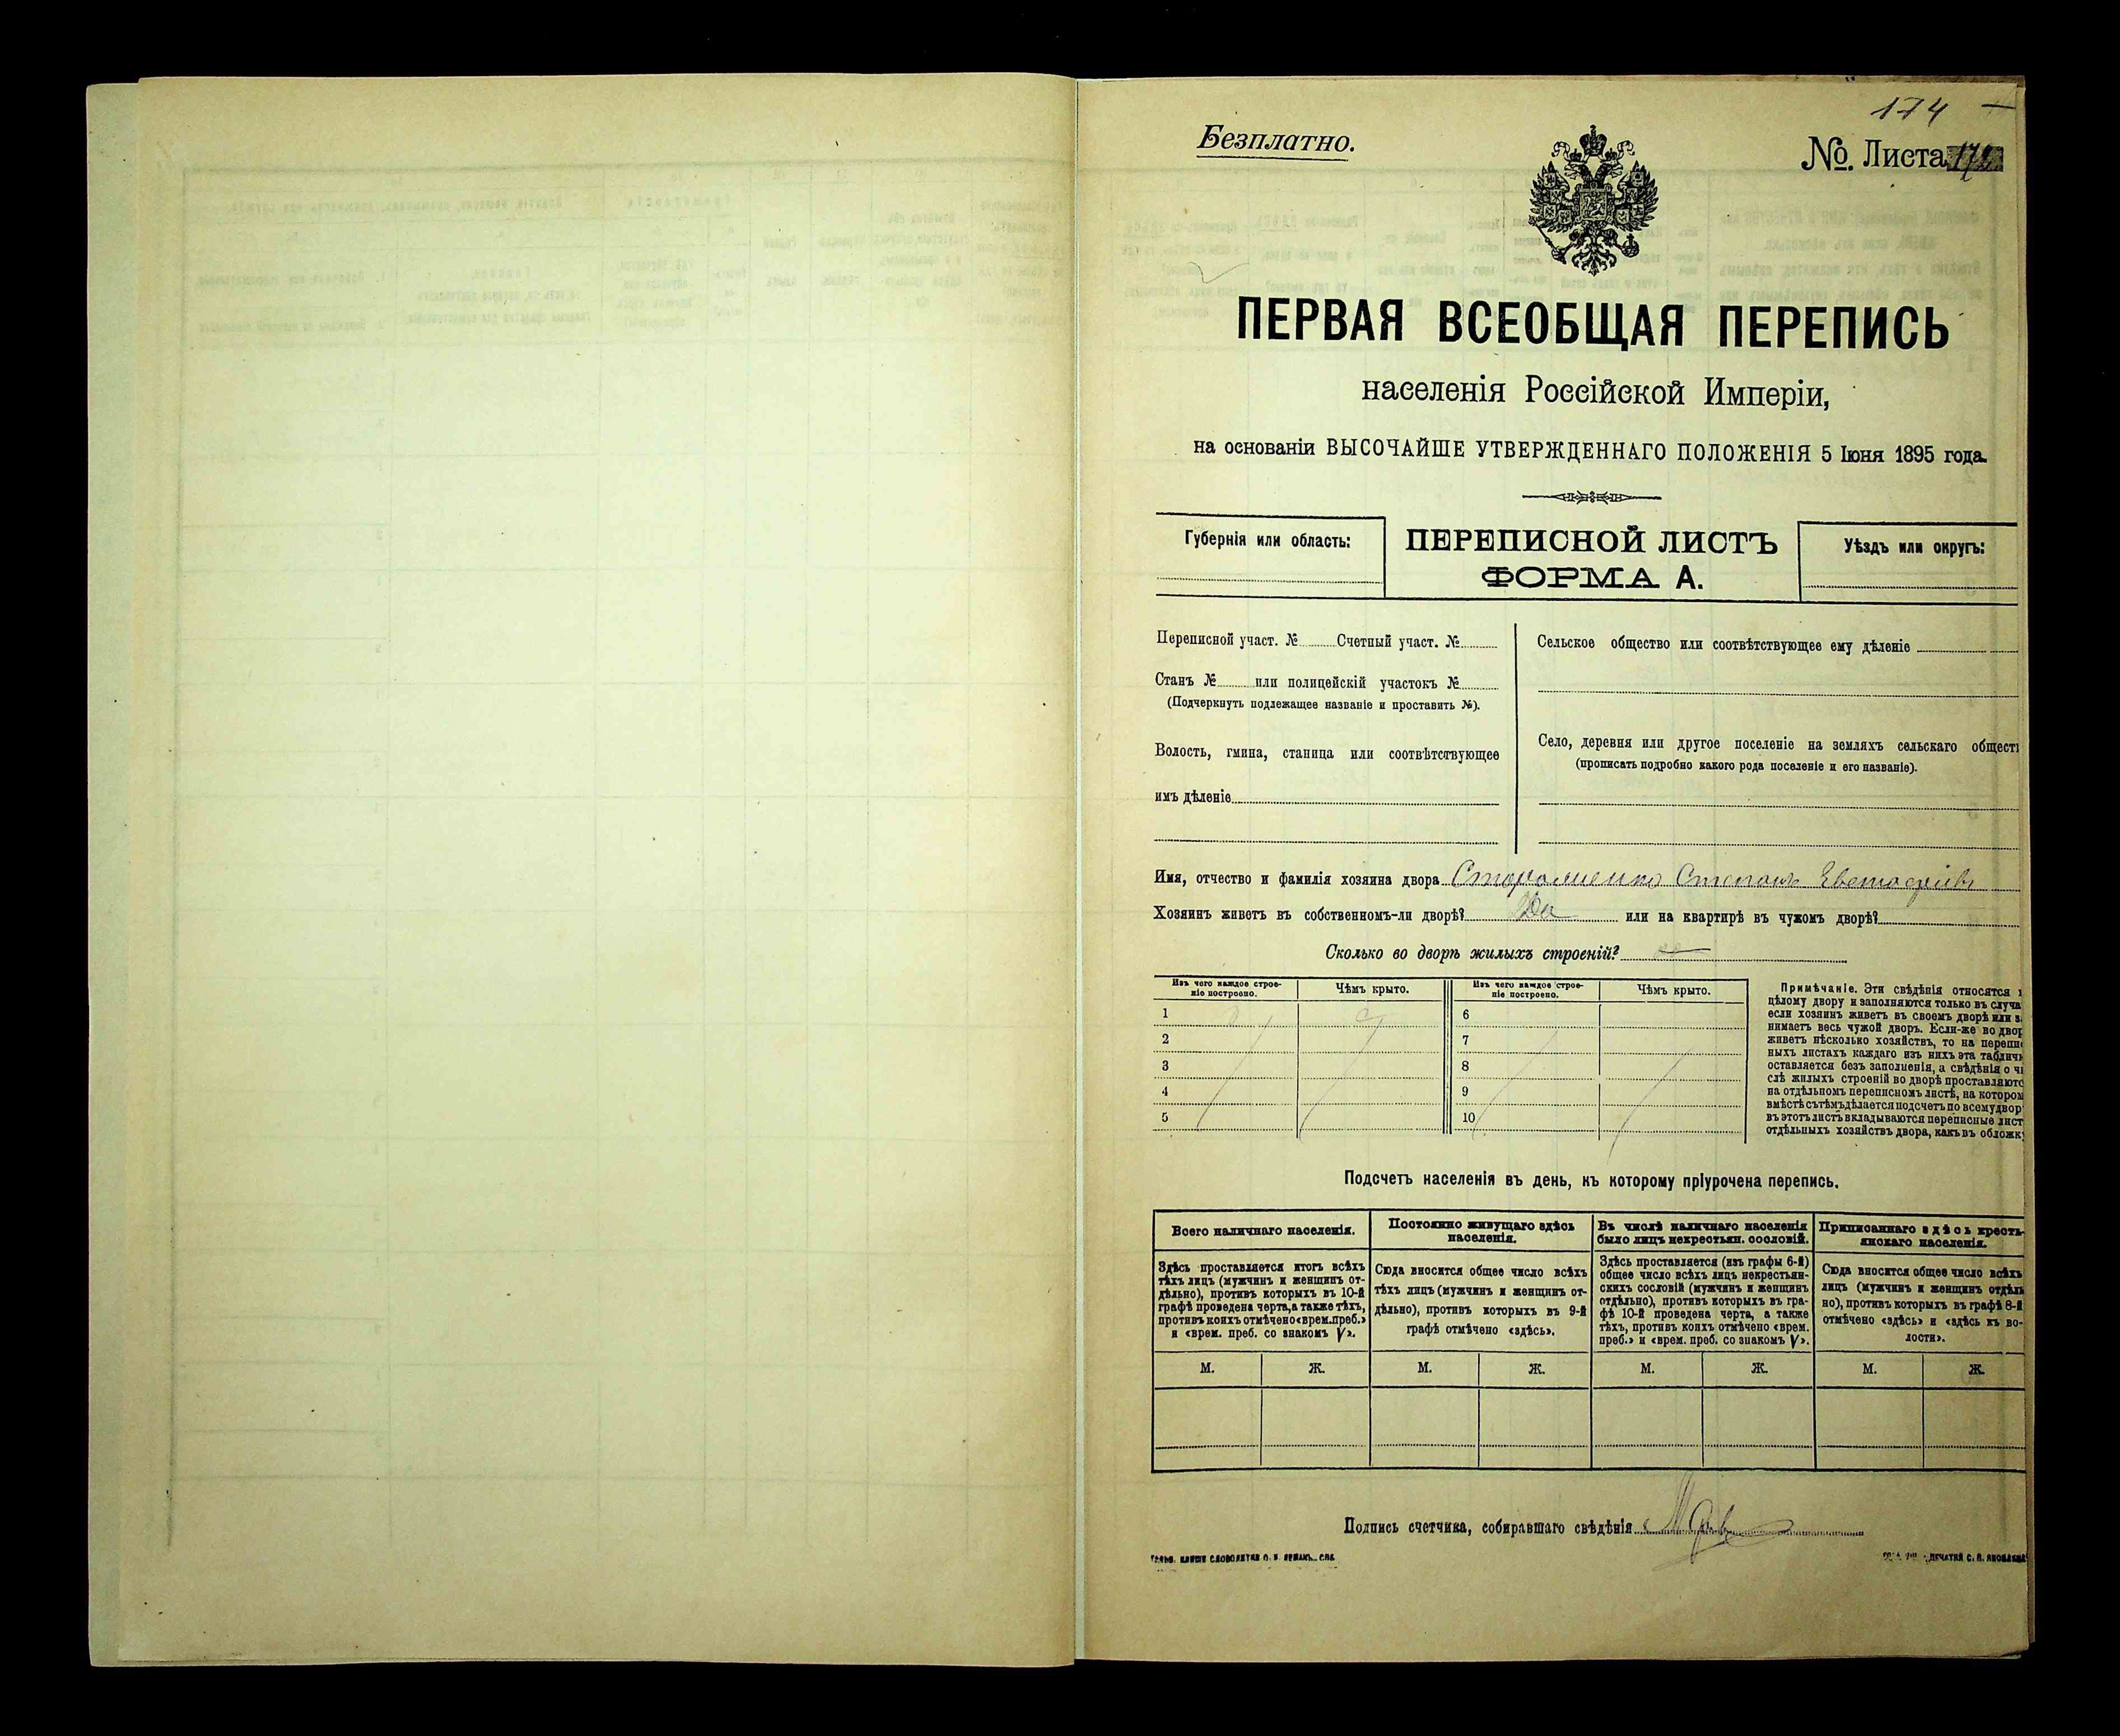 174 —
Безплатно.
№. Листа
ПЕРВАЯ ВСЕОБЩАЯ ПЕРЕПИСЬ
населенія Россійской Имперіи,
на основаніи ВЫСОЧАЙШЕ УТВЕРЖДЕННАГО ПОЛОЖЕНІЯ 5 Іюня 1895 года.
Губернія или область:
ПЕРЕПИСНОЙ ЛИСТЪ
ФОРМА А.
Уѣздъ или округъ:
Переписной участ. № Счетный участ. №
Станъ № или полицейскій участокъ №
(Подчеркнуть подлежащее названіе и проставить №).
Волость, гмина, станица или соотвѣтствующее
имъ дѣленіе
Сельское общество или соотвѣтствующее ему дѣленіе
Село, деревня или другое поселеніе на земляхъ сельскаго общест
(прописать подробно какого рода поселеніе и его названіе).
Имя, отчество и фамилія хозяина двора Степанъ
Хозяинъ живетъ въ собственномъ-ли дворѣ? Да или на квартирѣ въ чужомъ дворѣ?
Сколько во дворѣ жилыхъ строеній?
Изъ чего каждое строе-
ніе построено.
Чѣмъ крыто.
Изъ чего каждое строе-
ніе построено.
Чѣмъ крыто.
1 6
2 7
3 8
4 9
5 10
Примѣчаніе. Эти свѣдѣнія относятся
цѣлому двору и заполняются только въ случа
если хозяинъ живетъ въ своемъ дворѣ или з
нимаетъ весь чужой дворъ. Если-же во двор
живетъ нѣсколько хозяйствъ, то на перепи
ныхъ листахъ каждаго изъ нихъ эта таблич
оставляется безъ заполненія, а свѣдѣнія о чи
слѣ жилыхъ строеній во дворѣ проставляютс
на отдѣльномъ переписномъ листѣ, на котором
вмѣстѣ съ тѣмъ дѣлается подсчетъ по всему двор
въ этотъ листъ вкладываются переписные лист
отдѣльныхъ хозяйствъ двора, какъ въ обложк
Подсчетъ населенія въ день, къ которому пріурочена перепись.
Всего наличнаго населенія.
Здѣсь проставляется итогъ всѣхъ
тѣхъ лицъ (мужчинъ и женщинъ от-
дѣльно), противъ которыхъ въ 10-й
графѣ проведена черта, а также тѣхъ,
противъ коихъ отмѣчено «врем. преб.»
и «врем. преб. со знакомъ V».
Постоянно живущаго здѣсь
населенія.
Сюда вносится общее число всѣхъ
тѣхъ лицъ (мужчинъ и женщинъ от-
дѣльно), противъ которыхъ въ 9-й
графѣ отмѣчено «здѣсь».
Въ числѣ наличнаго населенія
было лицъ некрестьян. сословій.
Здѣсь проставляется (изъ графы 6-й)
общее число всѣхъ лицъ некрестьян-
скихъ сословій (мужчинъ и женщинъ
отдѣльно), противъ которыхъ въ гра-
фѣ 10-й проведена черта, а также
тѣхъ, противъ коихъ отмѣчено «врем.
преб.» и «врем. преб. со знакомъ V».
Приписаннаго здѣсь кресть-
янскаго населенія.
Сюда вносится общее число всѣхъ
лицъ (мужчинъ и женщинъ отдѣль
но), противъ которыхъ въ графѣ 8-й
отмѣчено «здѣсь» и «здѣсь къ во-
лости».
М. Ж. М. Ж. М. Ж. М. Ж.
Подпись счетчика, собиравшаго свѣдѣнія